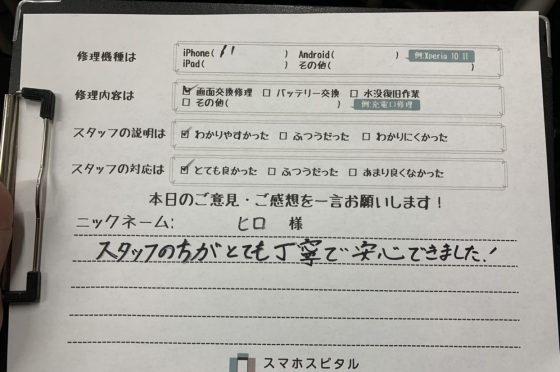 修理機種は iPhone( 11 ) Android( ) 例:Xperia 10 II
iPad( ) その他( )
修理内容は ☑ 画面交換修理 □ バッテリー交換 □ 水没復旧作業
□ その他( ) 例:充電口修理
スタッフの説明は ☑ わかりやすかった □ ふつうだった □ わかりにくかった
スタッフの対応は ☑ とても良かった □ ふつうだった □ あまり良くなかった
本日のご意見・ご感想を一言お願いします!
ニックネーム: ヒロ 様
スタッフの方がとても丁寧で安心できました!
スマホスピタル